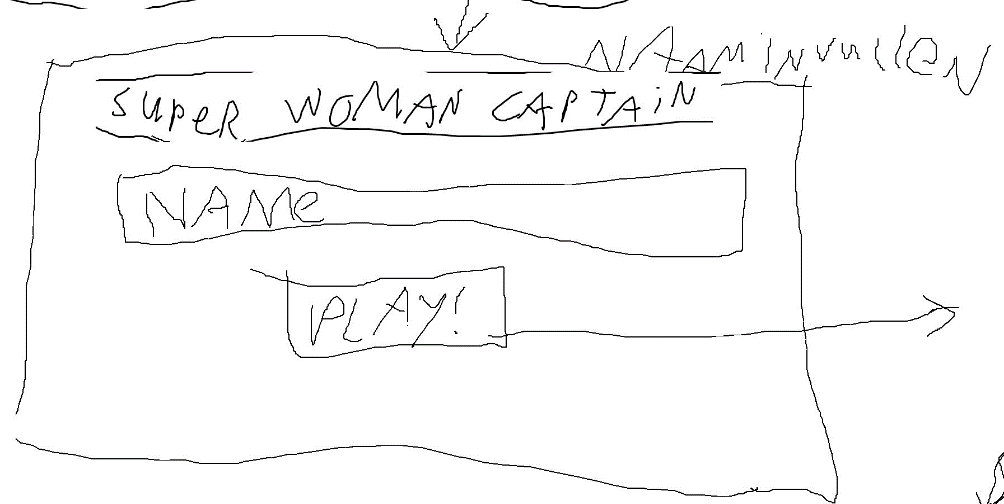 NAam invullen
SUPeR WOMAN CAPTAiN
NAMe
PLAY!